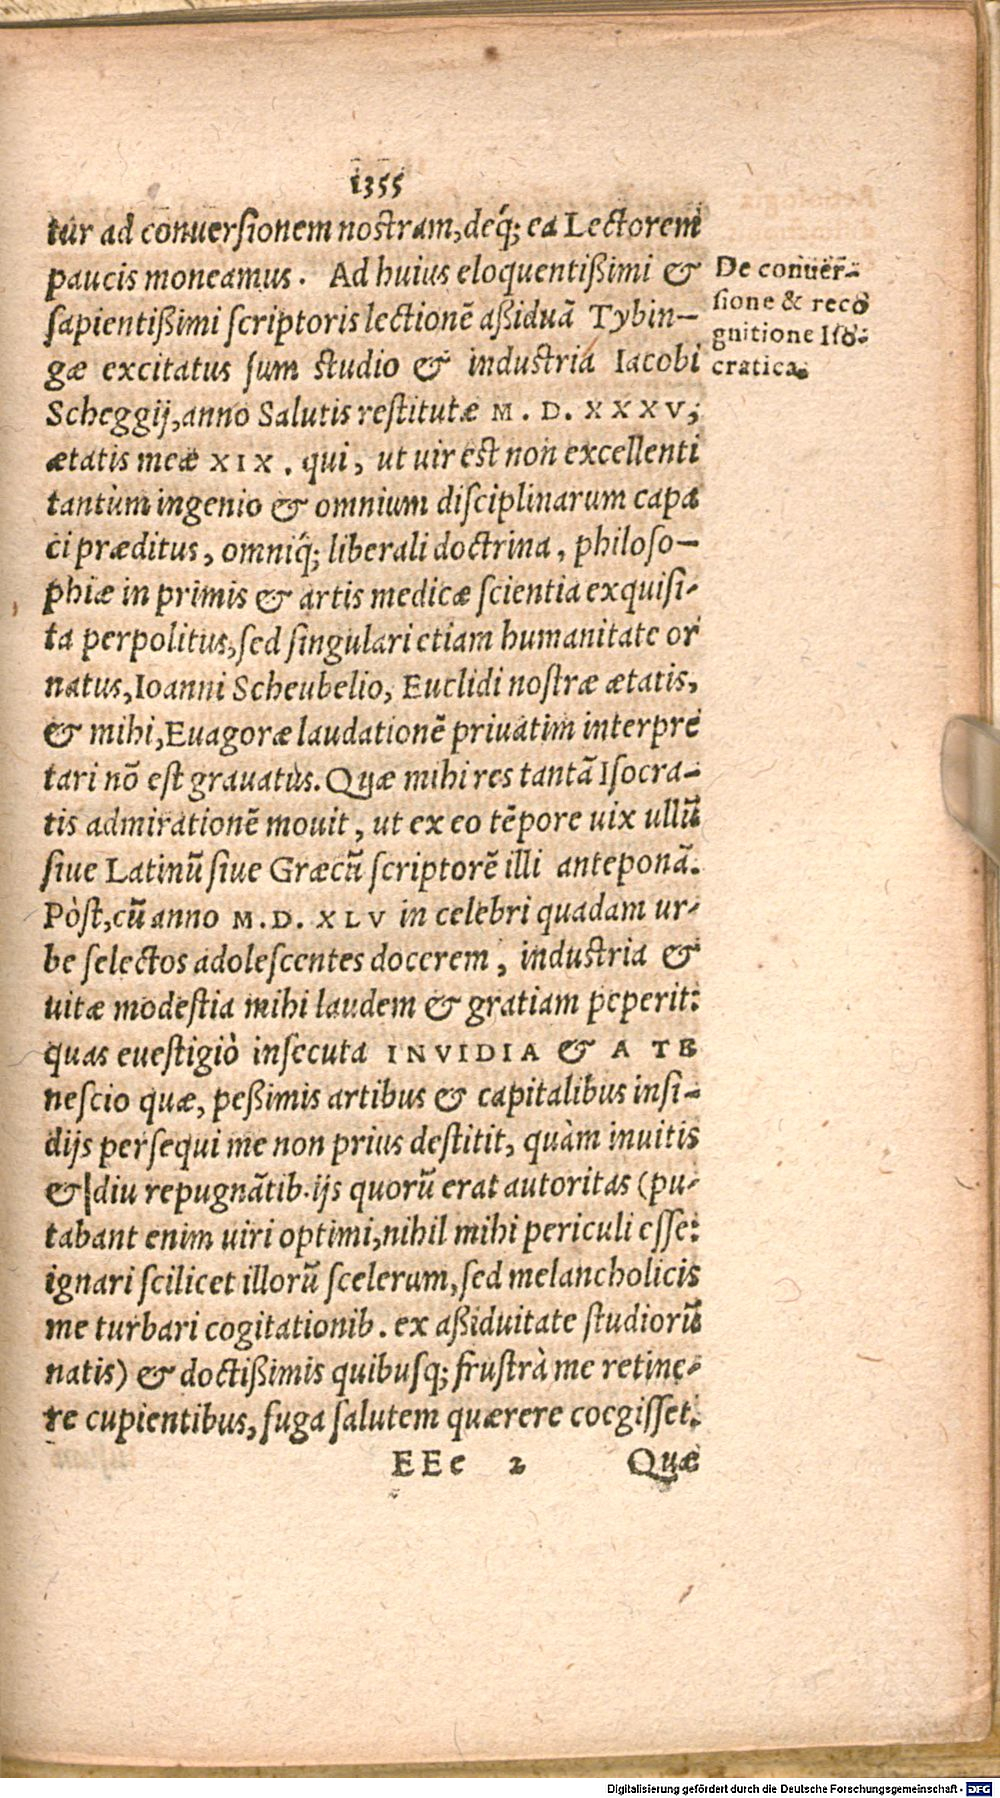 1355
tur ad conuersionem nostram, deq́; ea Lectorem
paucis moneamus. Ad huius eloquentißimi &
sapientißimi scriptoris lectionẽ aßiduã Tybin-
gæ excitatus sum studio & industria Iacobi
Scheggij, anno Salutis restitutæ M. D. XXXV,
ætatis meæ XIX. qui, ut uir est non excellenti
tantùm ingenio & omnium disciplinarum capa
ci præditus, omniq́; liberali doctrina, philoso-
phiæ in primis & artis medicæ scientia exquisi-
ta perpolitus, sed singulari etiam humanitate or
natus, Ioanni Scheubelio, Euclidi nostræ ætatis,
& mihi, Euagoræ laudationẽ priuatim interpre
tari nõ est grauatus. Quæ mihi res tantã Isocra-
tis admirationẽ mouit, ut ex eo tẽpore uix ullũ
siue Latinũ siue Græcũ scriptorẽ illi anteponã.
Pòst, cũ anno M. D. XLV in celebri quadam ur-
be selectos adolescentes docerem, industria &
uitæ modestia mihi laudem & gratiam peperit:
quas euestigiò insecuta INVIDIA & ATE
nescio quæ, peßimis artibus & capitalibus insi-
dijs persequi me non prius destitit, quàm inuitis
& diu repugnãtib. ijs quorũ erat autoritas (pu-
tabant enim uiri optimi, nihil mihi periculi esse:
ignari scilicet illorũ scelerum, sed melancholicis
me turbari cogitationib. ex aßiduitate studiorũ
natis) & doctißimis quibusq; frustrà me retine-
re cupientibus, fuga salutem quærere coegisset.
EEe 2 Quæ
De conuer-
sione & reco
gnitione Iso-
cratica.
Digitalisierung gefördert durch die Deutsche Forschungsgemeinschaft - DFG